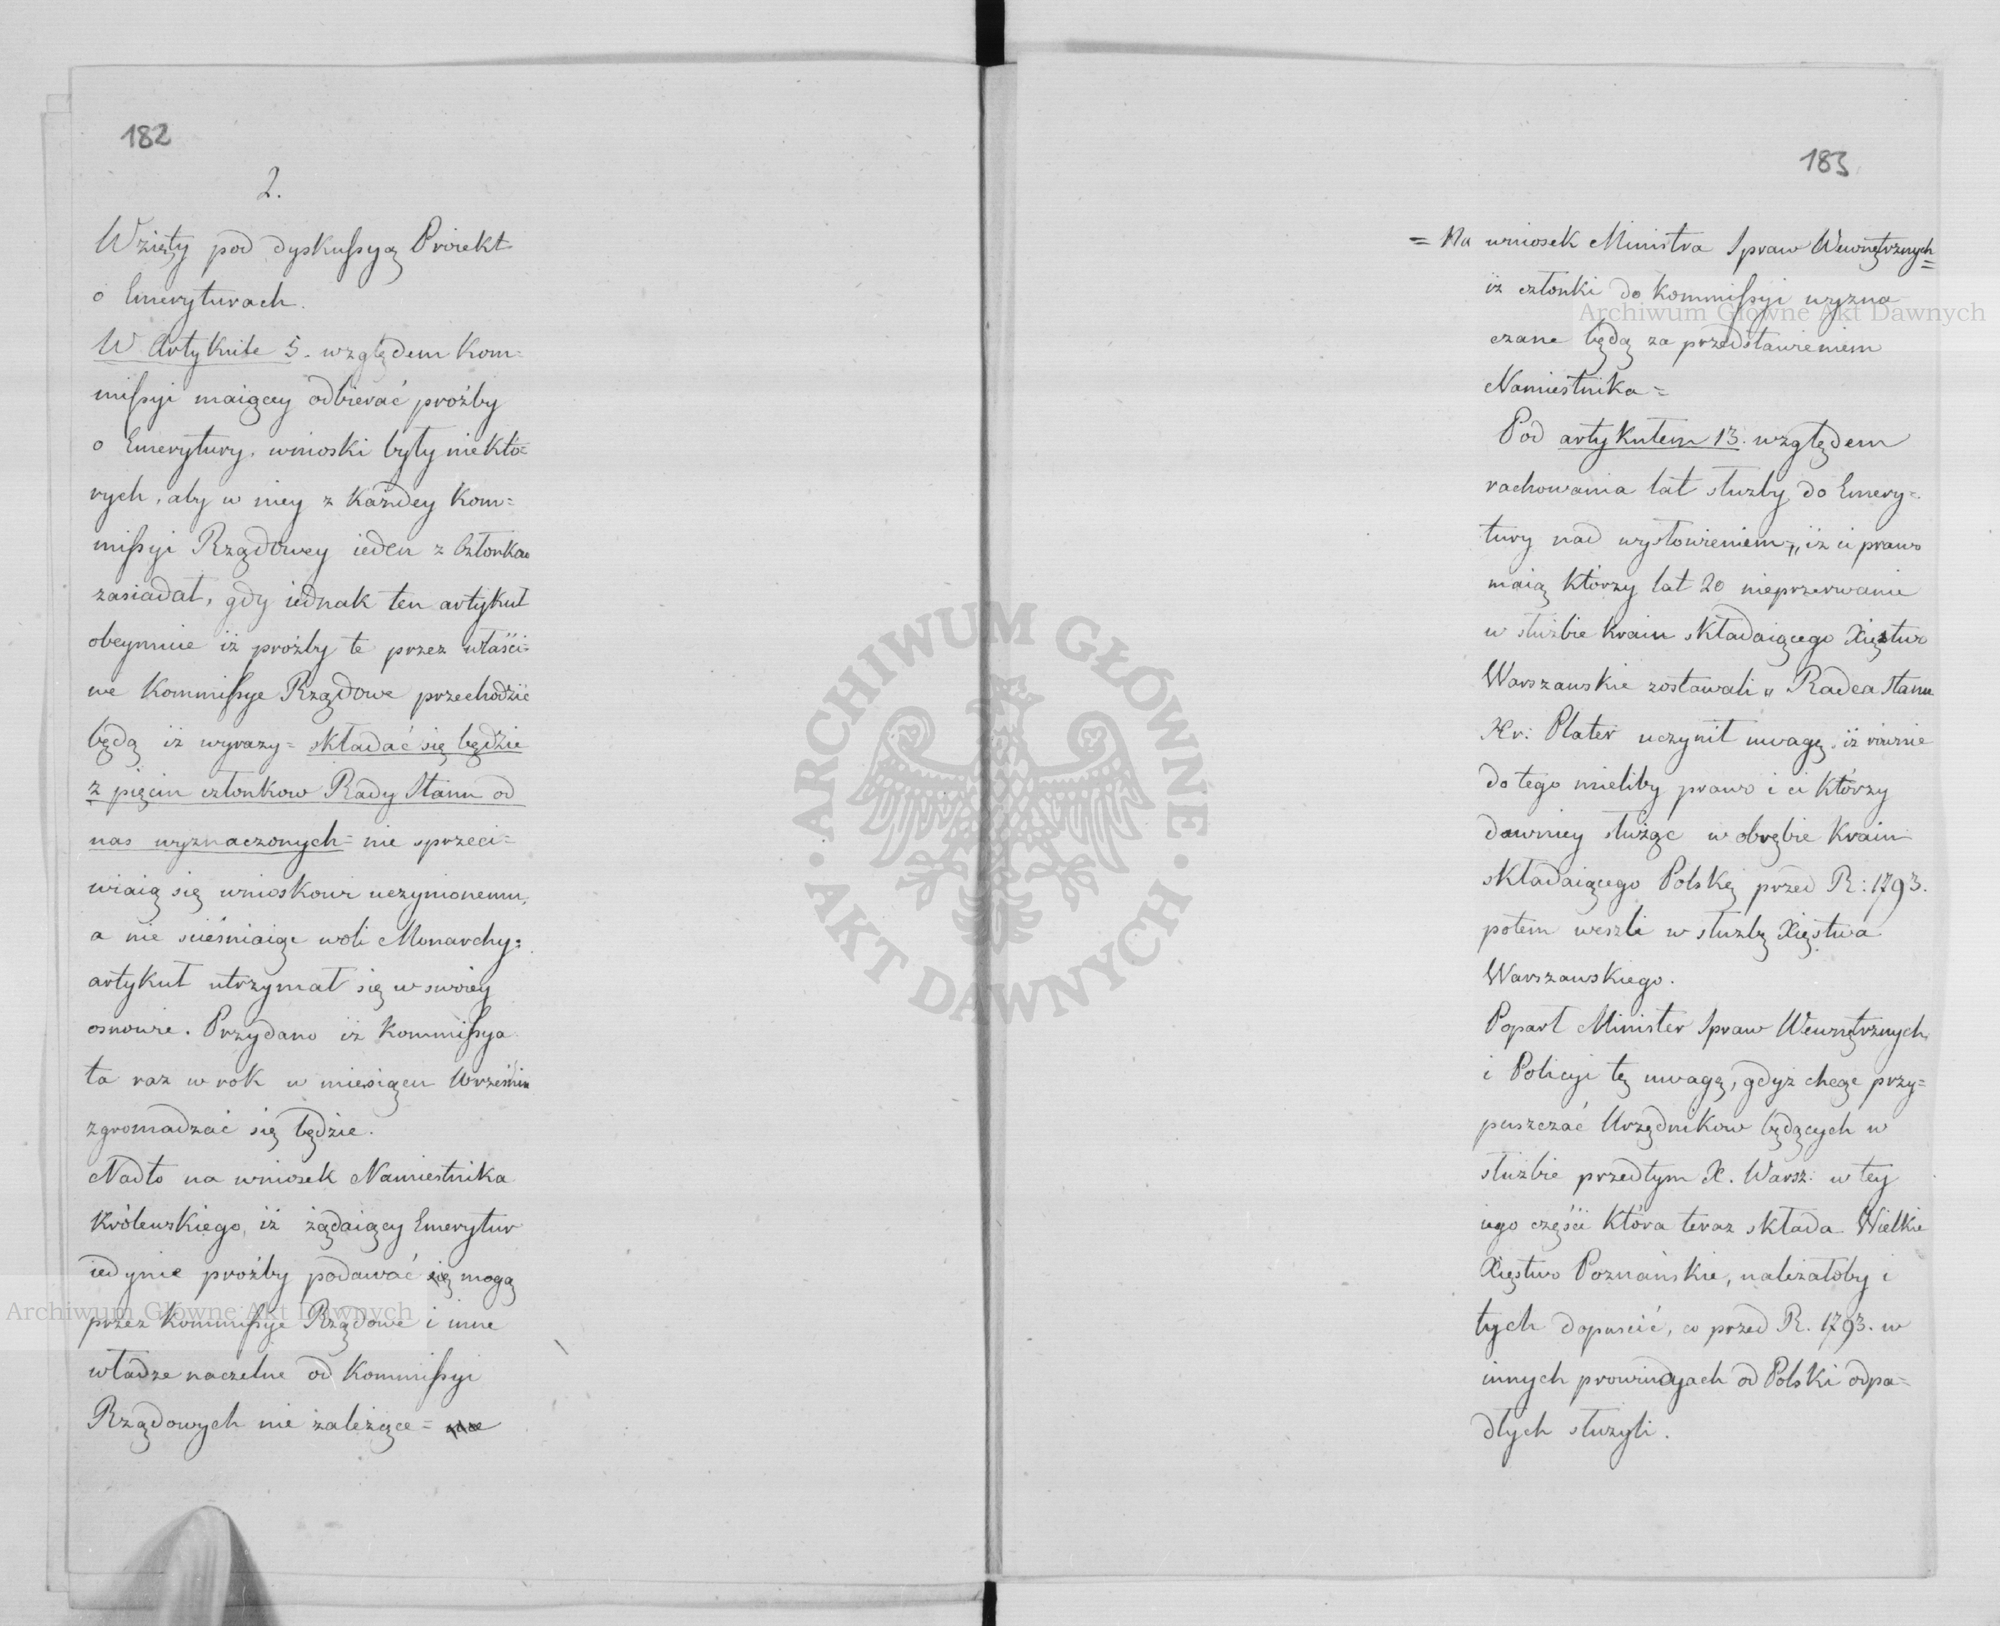 182
2.
Wzięty pod dyskussyą Proiekt
o Emeryturach.
W Artykule 5. względem Kom=
missyi maiącey odbierać proźby
o Emerytury, wnioski były niektó=
rych, aby w niey z Każdey Kom=
missyi Rządowey ieden z Członków
zasiadał, gdy iednak ten artykuł
obeymuie iż proźby te przez właści=
we Kommissye Rządowe przechodzić
będą iż wyrazy= składać się będzie
z pięciu członkow Rady Stanu od
nas wyznaczonych= nie sprzeci=
wiaią się wnioskowi uczynionemu,
a nie scieśniaiąc woli Monarchy;
artykuł utrzymał się w swoiey
osnowie. Przydano iż Kommissya
ta raz w rok w miesiącu Wrześniu
zgromadzać się będzie.
Nadto na wniosek Namiestnika
Królewskiego, iż żądaiący Emerytur
iedynie proźby podawać się mogą
przez Kommissye Rządowe i inne
władze naczelne od Kommissyi
Rządowych nie zależące=
183
= Na wniosek Ministra Spraw Wewnętrznych=
iż członki do Kommissyi wyzna
czane będą za przedstawieniem
Namiestnika=
Pod artykułem 13. względem
rachowania lat służby do Emery=
tury nad wysłowieniem „iż ci prawo
maią którzy lat 20 nieprzerwanie
w służbie kraiu składaiącego Xięstwo
Warszawskie zostawali" Radca Stanu
Hr: Plater uczynił uwagę, iż równie
do tego mieliby prawo i ci którzy
dawniey służąc w obrębie Kraiu
składaiącego Polskę przed R: 1793.
potem weszli w służbę Xięstwa
Warszawskiego.
Poparł Minister Spraw Wewnętrznych
i Policyi tę uwagę, gdyż chcąc przy=
puszczać Urzędnikow będących w
służbie przedtym X. Warsz: w tey
iego części która teraz składa Wielkie
Xięstwo Poznańskie, należałoby i
tych dopuścić, co przed R. 1793. w
innych prowincyach od Polski odpa=
dłych służyli.
ARCHIWUM GŁÓWNE · AKT DAWNYCH ·
Archiwum Główne Akt Dawnych
Archiwum Główne Akt Dawnych